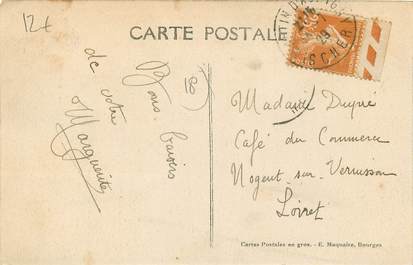 12+
CARTE POSTALE
Bons baisers
de votre
Marguerite
80
Madame Dupré
Café du Commerce
Nogent-sur-Vernisson
Loiret
Cartes Postales en gros. - E. Maquaire, Bourges